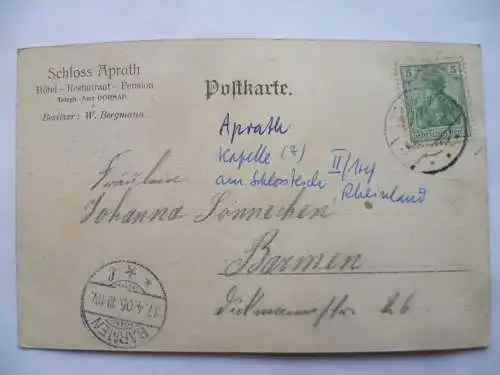 Schloss Aprath
Hôtel - Restaurant - Pension
Teleph.-Amt DORNAP.
Besitzer: W. Bergmann.
Postkarte.
5 5
Aprath
Kapelle (?)
am Schlossteich
II/1904
Rheinland
Fräulein
Johanna Tönnechen
Barmen
26
BARMEN
17.4.05.